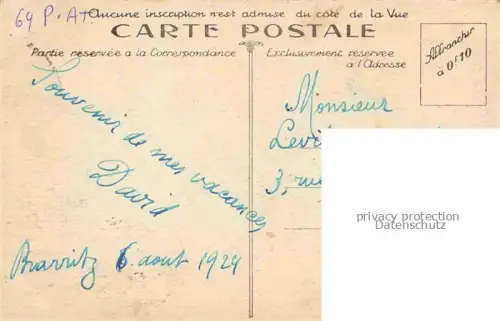 64 P. At.
Aucune inscription n'est admise du côté de la Vue
CARTE POSTALE
Partie réservée à la Correspondance
Exclusivement réservée
à l'Adresse
Affranchir
à 0f10
Souvenir de mes vacances
David
Biarritz 6 aout 1929
Monsieur
Levi
3, rue
privacy protection
Datenschutz